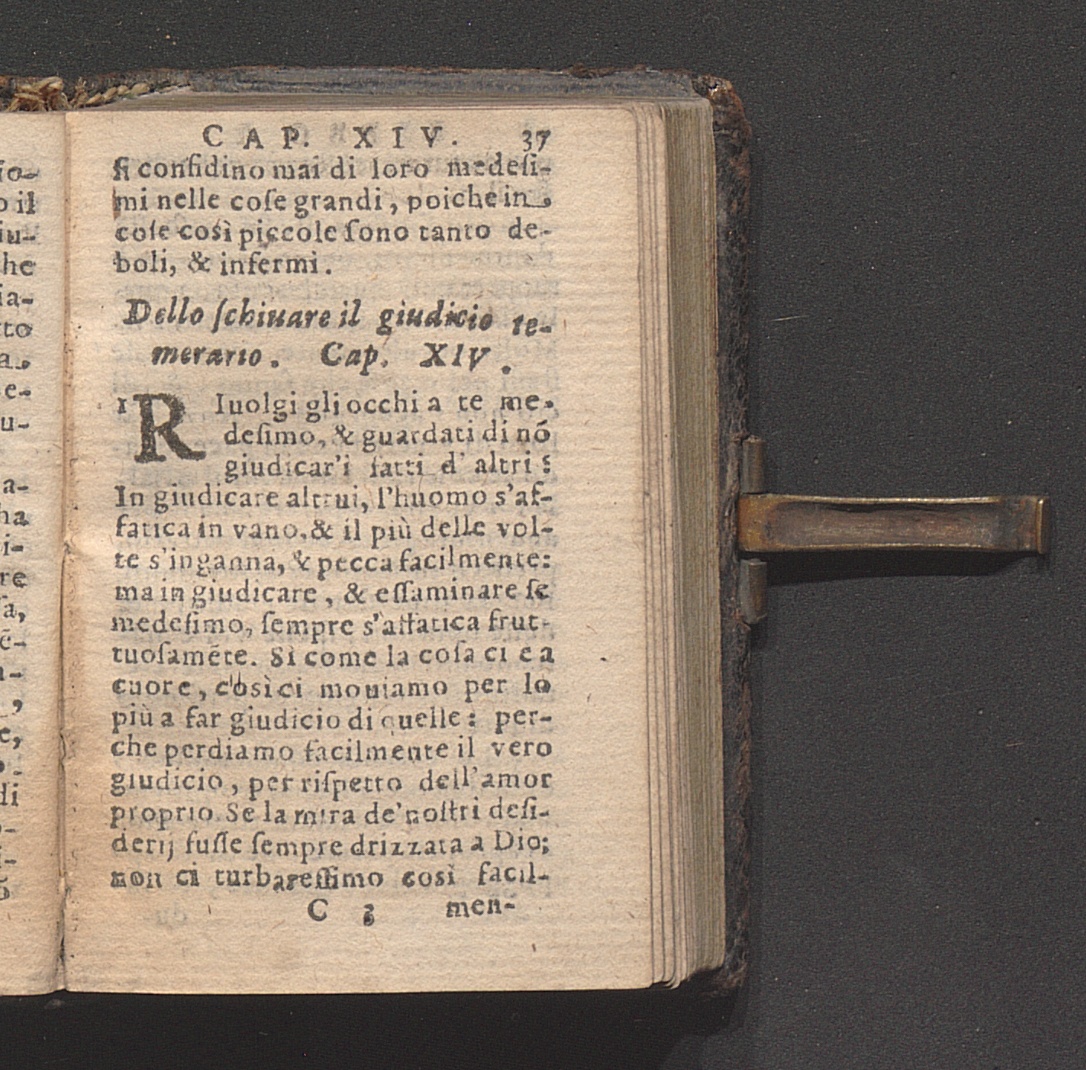 CAP. XIV. 37
ſi confidino mai di loro medeſi-
mi nelle coſe grandi, poiche in
coſe così piccole ſono tanto de-
boli, & infermi.
Dello ſchiuare il giudicio te-
merario. Cap. XIV.
1 RIuolgi gli occhi a te me-
deſimo, & guardati di nõ
giudicar'i fatti d'altri:
In giudicare altrui, l'huomo s'af-
fatica in vano, & il più delle vol-
te s'inganna, & pecca facilmente:
ma in giudicare, & eſſaminare ſe
medeſimo, ſempre s'affatica frut-
tuoſamẽte. Sì come la coſa ci è a
cuore, così ci mouiamo per lo
più a far giudicio di quelle: per-
che perdiamo facilmente il vero
giudicio, per riſpetto dell'amor
proprio. Se la mira de'noſtri deſi-
derij fuſſe ſempre drizzata a Dio;
non ci turbareſſimo così facil-
C 3 men-